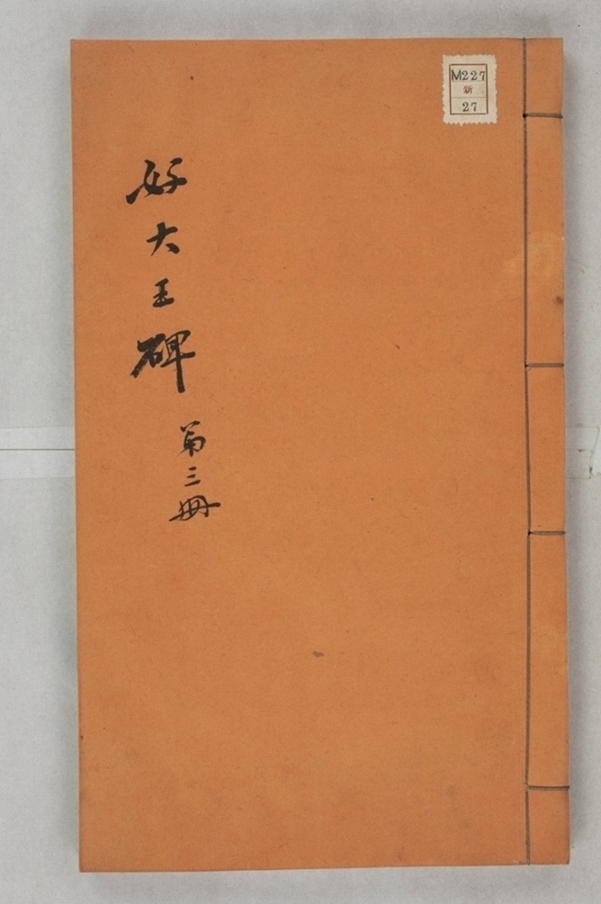 好大王碑
第三冊
M227
新
27